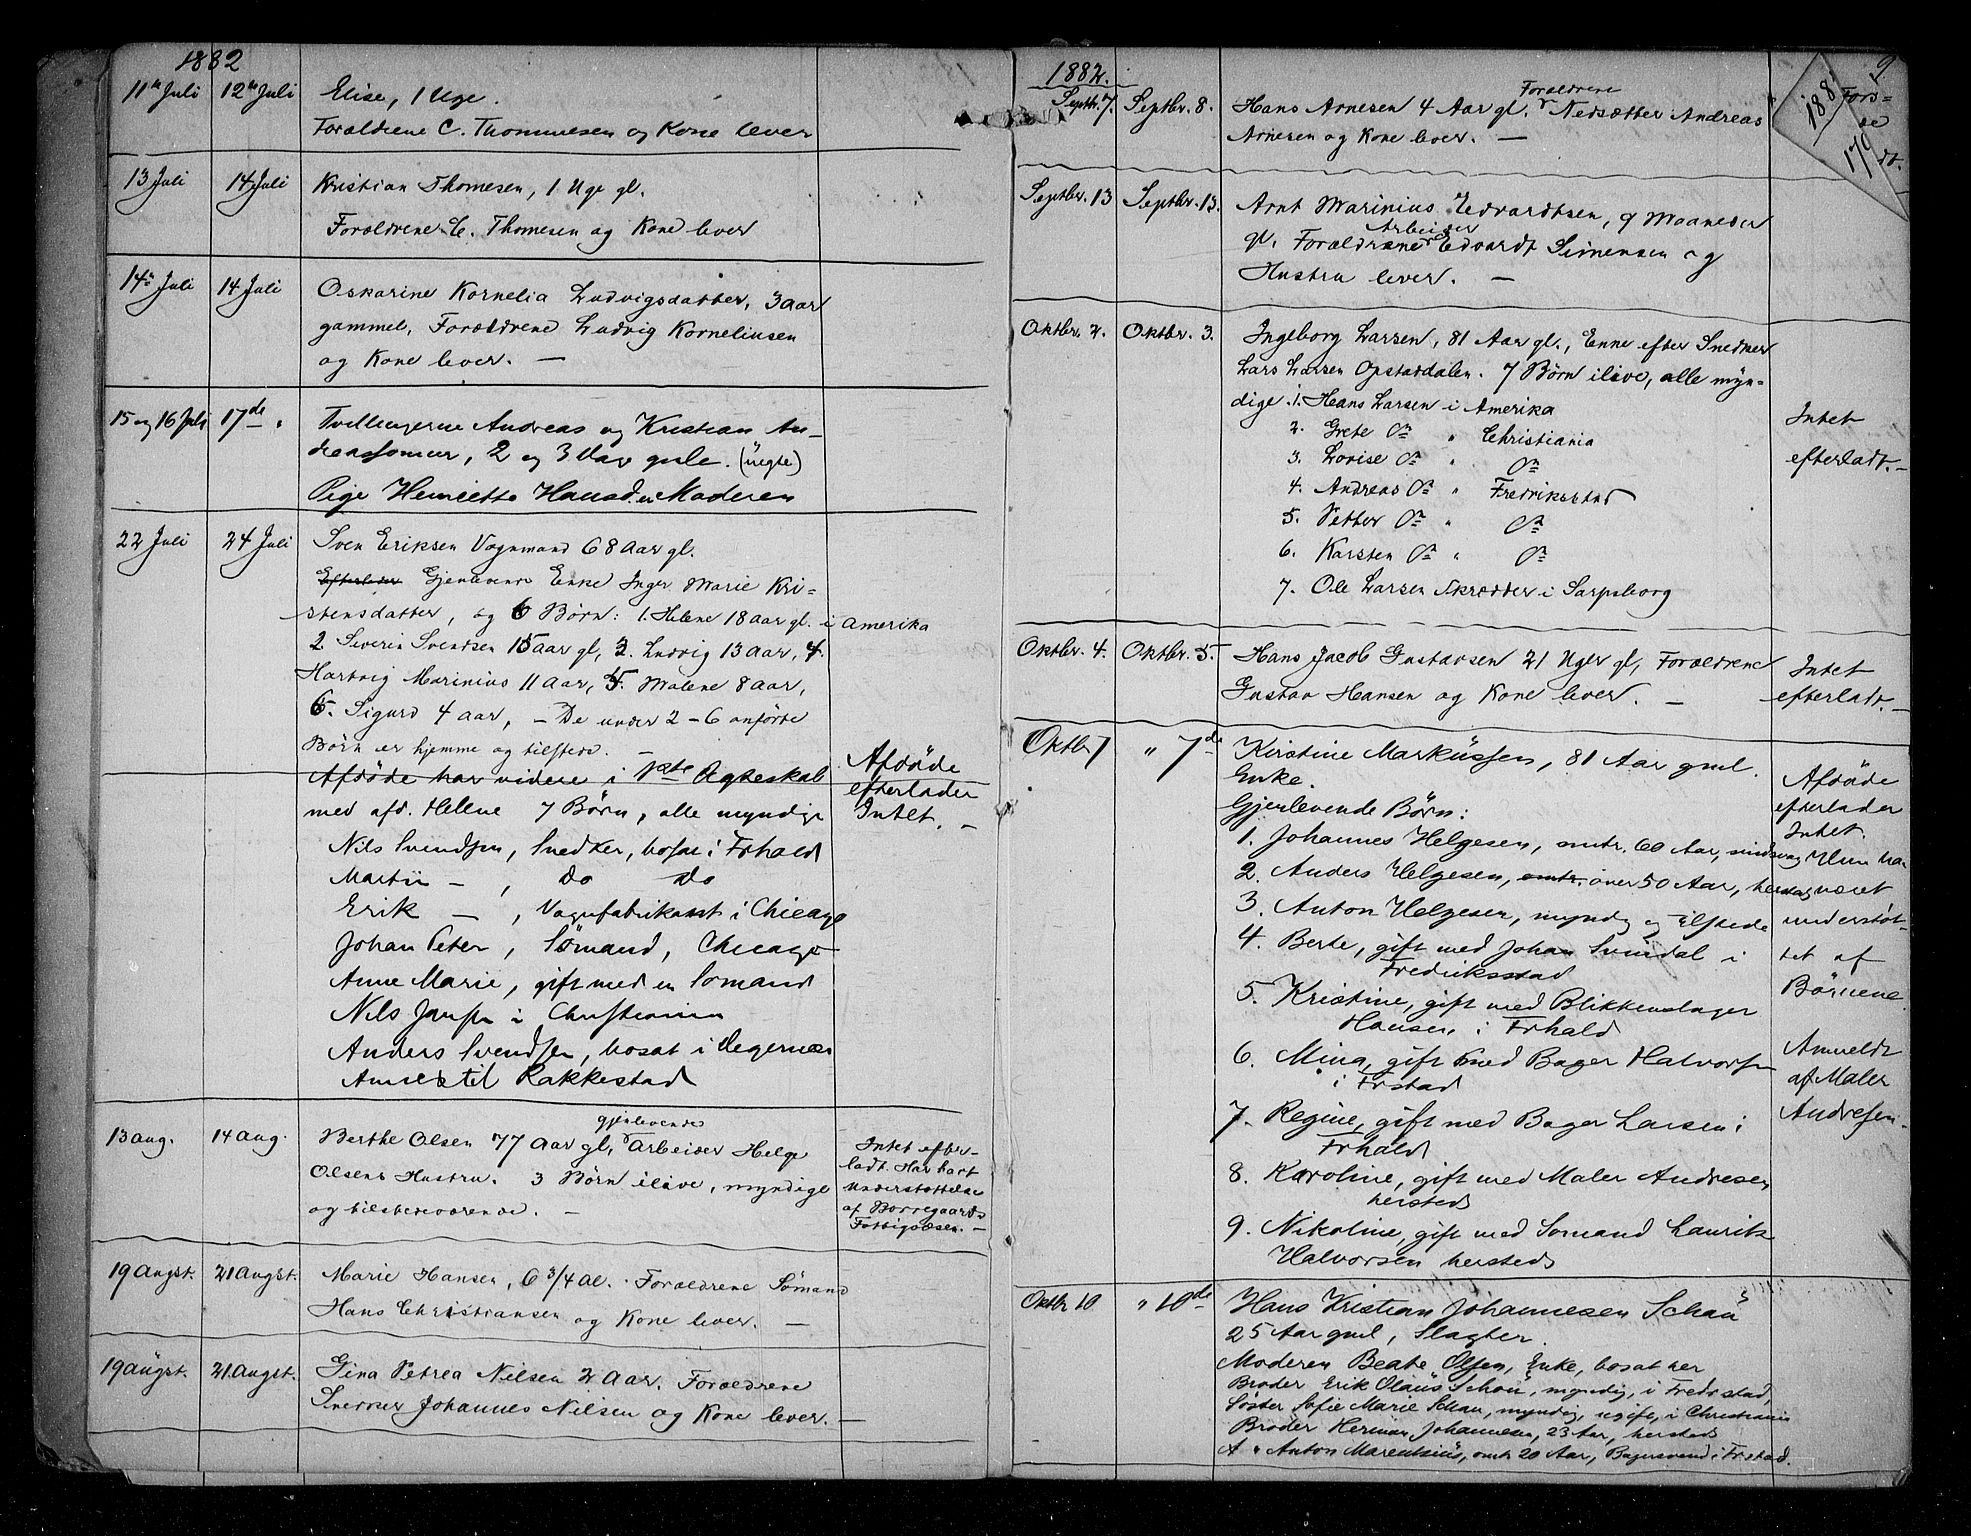 1882
11te Juli 12te Juli Elise, 1 Uge.
Forældrene C. Thommesen og Kone lever
13 Juli 14 Juli Kristian Thomesen, 1 Uge gl.
Forældrene C. Thomesen og Kone lever
14de Juli 14 Juli Oskarine Kornelia Ludvigsdatter, 3 aar
gammel, Forældrene Ludvig Korneliusen
og Kone lever. —
15 og 16 Juli 17de " Tvillingerne Andreas og Kristian An-
dreassønner, 2 og 3 Dage gmle. (uægte)
Pige Henriette Hansd. er Moderen
22 Juli 24 Juli Sven Eriksen Vognmand 68 Aar gl.
Efterlader Gjenlevende Enke Inger Marie Kri-
stensdatter, og 6 Børn: 1. Helene 18 aar gl. i Amerika
2. Severin Svendsen 15 aar gl, 3. Ludvig 13 aar, 4.
Hartvig Marinius 11 aar, 5. Malene 8 aar,
6. Sigurd 4 aar, — De under 2-6 anførte
Børn er hjemme og tilstede. —
Afdøde har videre i 1ste Ægteskab
med afd. Hellene 7 Børn, alle myndige
Nils Svendsen, Snedker, bosat i Frhald
Martin — , Do Do
Erik — , Vognfabrikant i Chicago
Johan Peter, Sømand, Chicago
Anne Marie, gift med en Sømand
Nils Jansen i Christiania
Anders Svendsen, bosat i Degernæs
Annex til Rakkestad
Afdøde
efterlader
Intet. —
13 aug. 14 aug. Berthe Olsen 77 Aar gl, gjenlevende Arbeider Helge
Olsens Hustru. 3 Børn ilive, myndige
og tilstedeværende. —
Intet efter-
ladt. Har havt
Understøttelse
af Borregaards
Fattigvæsen. —
19 Augst. 21 Augst. Marie Hansen, 6 3/4 Al. Forældrene Sømand
Hans Christiansen og Kone lever. —
19 Augst. 21 Augst. Gina Petrea Nilsen 2 Aar. Forældrene
Snedker Johannes Nilsen og Kone lever. —
1882. 9
Septbr. 7. Septbr. 8. Hans Arnesen 4 Aar gl. Forældrene Nedsætter Andreas
Arnesen og Kone lever. —
188
179
Septbr. 13 Septbr. 13. Arnt Marinius Edvardtsen, 9 Maaneder
gl. Forældrene Arbeider Edvardt Simensen og
Hustru lever. —
Oktbr. 2. Oktbr. 3. Ingeborg Larsen, 81 Aar gl., Enke efter Snedker
Lars Larsen Opstaddalen. 7 Børn ilive, alle myn-
dige. 1. Hans Larsen i Amerika
2. Grete Do " Christiania
3. Lovise Do " Do
4. Andreas Do " Fredrikstad
5. Petter Do " Do
6. Karsten Do " Do
7. Ole Larsen Skrædder i Sarpsborg
Intet
efterladt. —
Oktbr. 4. Oktbr. 5. Hans Jacob Gustavsen 21 Uger gl, Forældrene
Gustav Hansen og Kone lever. —
Intet
efterladt. —
Oktbr 7 " 7de Kristine Markussen, 81 Aar gml.
Enke.
Gjenlevende Børn:
1. Johannes Helgesen, omtr. 60 Aar, sindssvag
2. Anders Helgesen, omtr. over 50 Aar, hersteds
3. Anton Helgesen, myndig og tilstede
4. Berte, gift med Johan Svindal i
Fredriksstad
5. Kristine, gift med Blikkenslager
Hansen, i Frhald
6. Mina, gift med Bager Halvorsen
i Frstad
7. Regine, gift med Bager Larsen i
Frhald
8. Karoline, gift med Maler Andresen
hersteds
9. Nikoline, gift med Sømand Laurits
Halvorsen hersteds
Afdøde
efterlader
Intet.
Hun har
været
understøt-
tet af
Børnene.
Anmeldt
af Maler
Andresen.
Oktbr 10 " 10de Hans Kristian Johannesen Schau
25 Aar gml, Slagter.
Moderen Beate Olsen, Enke, bosat her
Broder Erik Olaus Schau, myndig, i Fredrstad,
Søster Sofie Marie Schau, myndig, ugift, i Christiania
Broder Herman Johannesen, 23 Aar, hersteds
A " Anton Marentsius, omtr 20 Aar, Bagersvend i Frstad.